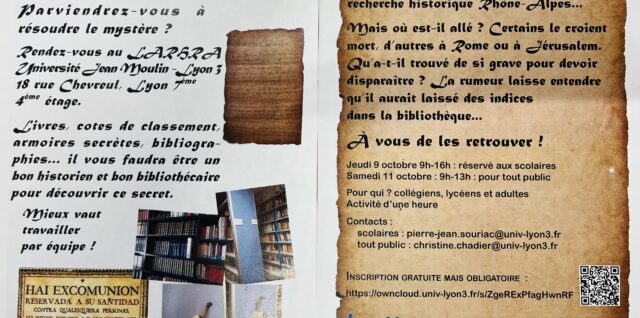 Parviendrez-vous à
résoudre le mystère ?
Rendez-vous au LARHRA
Université Jean Moulin - Lyon 3
18 rue Chevreul, Lyon 7ème
4ème étage.
Livres, cotes de classement,
armoires secrètes, bibliogra-
phies... il vous faudra être un
bon historien et bon bibliothécaire
pour découvrir ce secret.
Mieux vaut
travailler
par équipe !
HAI EXCOMUNION
RESERVADA A SU SANTIDAD
CONTRA QUALESQUIERA PERSONAS,
recherche historique Rhône-Alpes...
Mais où est-il allé ? Certains le croient
mort, d'autres à Rome ou à Jérusalem.
Qu'a-t-il trouvé de si grave pour devoir
disparaître ? La rumeur laisse entendre
qu'il aurait laissé des indices
dans la bibliothèque...
À vous de les retrouver !
Jeudi 9 octobre 9h-16h : réservé aux scolaires
Samedi 11 octobre : 9h-13h : pour tout public
Pour qui ? collégiens, lycéens et adultes
Activité d'une heure
Contacts :
scolaires : pierre-jean.souriac@univ-lyon3.fr
tout public : christine.chadier@univ-lyon3.fr
INSCRIPTION GRATUITE MAIS OBLIGATOIRE :
https://owncloud.univ-lyon3.fr/s/ZgeRExPfagHwnRF